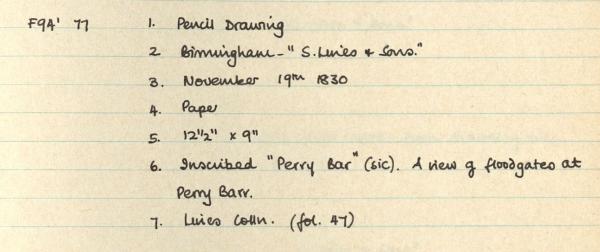 F94' 77 1. Pencil Drawing
2 Birmingham - "S. Lines & Sons."
3. November 19th 1830
4. Paper
5. 12½" x 9"
6. Inscribed "Perry Bar" (sic). A view of floodgates at
Perry Barr.
7. Lines Colln. (fol. 47)